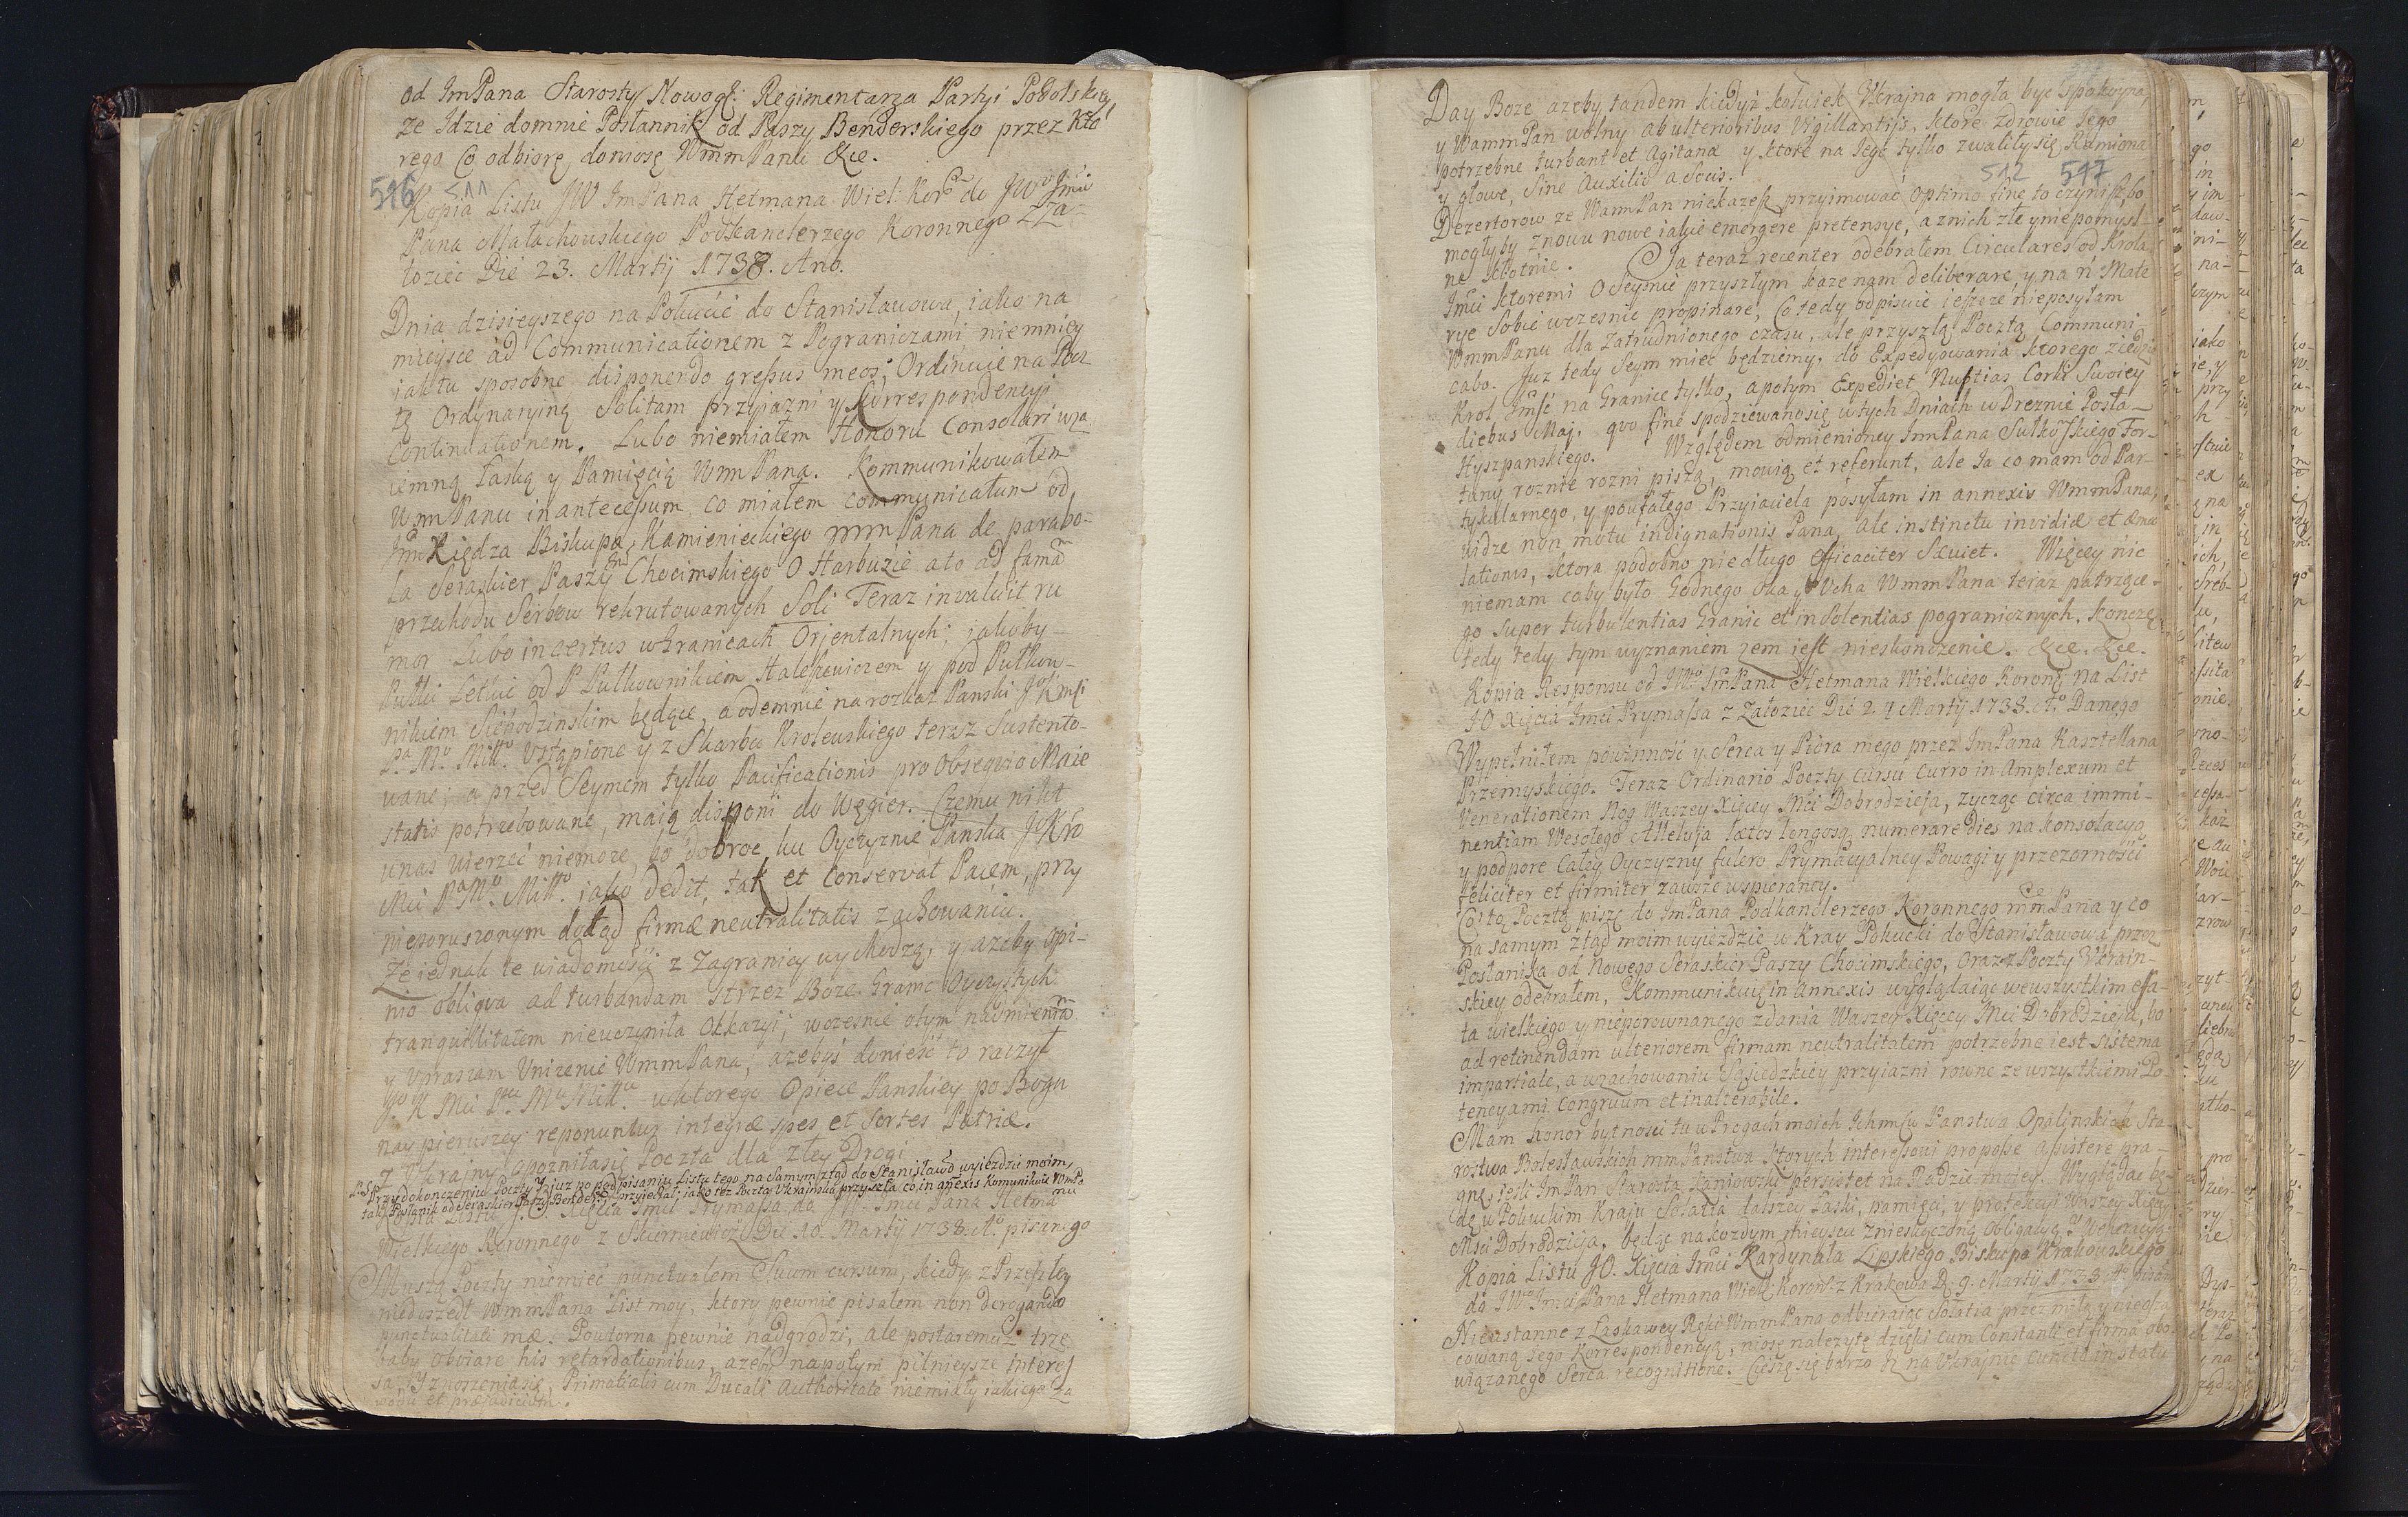 od ImPana Starosty Nowogr: Regimentarza Partyi Podolskiey,
ze Idzie domnie Posłannik od Paszy Benderskiego przez kto
rego Co odbiorę, doniosę WmmPanu &ce.
516 511
Kopia Listu JW ImPana Hetmana Wiel: Kor: do JWo Jmci
Pana Małachowskiego Podkanclerzego Koronnego z Za-
łoziec Die 23. Martij 1738. Ano.
Dnia dzisieyszego na Pokucie do Stanisławowa, iako na
mieysce ad Communicationem z Pograniczami niemniey
iak tu sposobne disponendo greßus meos; Ordinuię na Pocz
tę Ordynaryiną Solitam przyiazni y Korrespondencyi
Continuationem. Lubo niemiałem Honoru Consolari wza
iemną Łaską y Pamięcią WmPana. Kommunikowałem
WmmPanu in anteceßum, co miałem communicatum od
Jm Xiędza Biskupa Kamienieckiego mmPana de parabo-
la Seraskier Paszy Chocimskiego O Harbuzie ato ad famam
przechodu Serbow rekrutowanych Soli Teraz invaluit ru
mor Lubo incertus w Granicach Orjentalnych; jakoby
Pułki Letkie od P Pułkownikiem Haleßewiczem y pod Pułkow-
nikiem Sierodzinskim będące, a odemnie na rozkaz Panski JoKMsci
Pa Mo Miłło. Ustąpione y z Skarbu Krolewskiego teraz Sustento-
wane; a przed Seymem tylko Pacificationis pro Obsequio Maie
statis potrzebowane, maią disponi do Węgier. Czemu nikt
unas wierzeć niemoze, bo dobroc ku Oyczyznie Panska JoKro
Mci PaMo. Miłło. jako dedit, tak et Conservat Pacem, przy
nieporuszonym dotąd firmæ neutralitatis zachowaniu.
Ze iednak te wiadomości z Zagranicy wychodzą, y azeby opi-
nio obliqua ad turbandam strzez Boze Granic Oyczystych
tranquillitatem nieuczyniła Okkazyi; wczesnie otym nadmieniam
y Upraszam Unizenie WmmPana, azebys doniesć to raczył
Jo K Mci Pu Mu Miłłu. wktorego Opiece Panskiey po Bogu
naypierwszey reponuntur integræ spes et Sortes Patriæ.
Z Ukrainy spozniłasię Poczta dla złey Drogi
P: S: Przy dokonczeniu Poczty y juz po podpisaniu Listu tego na Samym ztąd do Stanisławo wyieździe moim,
tak Posłanik od Seraskier Paszy Benders: przyiechał; jako tez Poczta Ukrainska przyszła co in anexis Komunikuie WmPa
nu
Kopia Listu J.O. Xięcia Jmci Prymaßa do JW. Jmci Pana Hetma
Wielkiego Koronnego z Skierniewicz Die 10. Martij 1738. Ao pisanego
Muszą Poczty niemieć punctualem Suum cursum, kiedy z Przeszłey
niedoszedł WmmPana List moy, ktory pewnie pisałem non derogando
punctualitati meæ. Powtorna pewnie nadgrodzi, ale postaremuz trze
baby obviare his retardationibus, azeby napotym pilnieysze interes
sa, y znoszeniasię, Primatialis cum Ducali Authoritate niemiały iakiego Za
wodu et præjudicium.
Day Boze azeby tandem kiedyż kolwiek Ukrajna mogła być Spokoyna,
y WammPan wolny ab ulterioribus Vigillantijs, ktore Zdrowie Jego
potrzebne turbant et Agitant y ktore na Jego tylko zwaliły się Ramiona
y głowę, Sine Auxilio a Socis.
512 517
Dezertorow ze WamPan niekazesz przyimować, optimo fine to czynisz, bo
mogłyby znowu nowe iakie emergere pretensye, a znich złe y niepomysl-
ne kłotnie. Ja teraz recenter odebrałem Circulares od Krola
Jmci ktoremi O Seymie przyszłym kaze nam deliberare, y na n Mate
rye Sobie wczesnie propinare, Co tedy odpisuie ieszcze nieposyłam
WmmPanu dla Zatrudnionego czasu, ale przyszłą Pocztą Communi
cabo. Juz tedy Seym mieć będziemy, do Expedyowania ktorego ziedzie
Krol Jmść na Granicę tylko, apotym Expediet Nuptias Corki Swoiey
diebus Maij. quo fine spodziewanosię wtych Dniach w Dreznie Posła-
Hyszpanskiego. Względem odmienioney ImPana Sułkowskiego For-
tuny roznie rozni piszą, mowią et referunt, ale Ja co mam od Par-
tykularnego, y poufałego Przyiaciela posyłam in annexis WmmPana,
widze non motu indignationis Pana, ale instinctu invidiæ et æmu
lationis, ktora podobno niedługo efficaciter Sæviet. Więcey nic
niemam coby było Godnego Oka y Ucha WmmPana teraz patrzące-
go super turbulentias Granic et insolentias pogranicznych. konczę
tedy tedy tym wyznaniem zem jest nieskonczenie. &ce. &ce.
Kopia Responsu od JWo JmPana Hetmana Wielkiego Koronn: na List
JO Xięcia Jmci Prymaßa z Załoziec Die 24 Martij 1738. Ao Danego
Wypełniłem powinność y Serca y Piora mego przez ImPana Kasztellana
Przemyskiego. Teraz Ordinario Poczty cursu Curro in Amplexum et
Venerationem Nog Waszey Xięcey Mci Dobrodzieja, zycząc circa immi-
nentiam Wesołego Alleluja lætos longosq numerare dies na konsolacyą
y podporę Całey Oyczyzny fulcro Prymacyalney Powagi y przezorności
feliciter et firmiter zawsze wspieraney.
Co tą Pocztą piszę do ImPana Podkanclerzego Koronnego mmPana y co
na samym ztąd moim wyieździe w Kray Pokucki do Stanisławowa przez
Posłanika od Nowego Seraskier Paszy Chocimskiego, Oraz z Poczty Ukrain-
skiey odebrałem, Kommunikuię in Annexis wyglądaiąc we wszystkim effa-
ta wielkiego y nieporownanego zdania Waszey Xięcey Mci Dobrodzieja, bo
ad retinendam ulteriorem firmam neutralitatem potrzebne iest Sistema
impartiale, a wzachowaniu Sąsiedzkiey przyiazni rowne ze wszystkiemi Po-
tencyami Congruum et inalterabile.
Mam honor bytnosci tu w Progach moich Ichmciw Państwa Opalinskich Sta-
rostwa Bolesławskich mmPanstwa, ktorych interessowi propose aßistere pra-
gnę, jesli ImPan Starosta Kaniowski persistet na Radzie moiey. Wyglądać bę-
dę w Pokuckim Kraju Solatia dalszey Łaski, pamięci, y protekcyi Waszey Xięcey
Mści Dobrodzieja, będąc na kozdym mieyscu znieskonczoną obligacyą y Weneracyą
Kopia Listu JO. Xięcia Jmci Kardynała Lipskiego Biskupa Krakowskiego
do JWo Jmci Pana Hetmana Wielk: Koron: z Krakowa D. 9. Martij 1738 Ao pisan
Nieustanne z Łaskawey Ręki WmmPana odbieraiąc Solatia przez miłą y niesza
cowaną Jego Korrespondencyą, niosę nalezytę dzięki Cum Constanti et firma obo
wiązanego Serca recognitione. Cieszę się barzo iz na Ukrajnie cuncta in statu